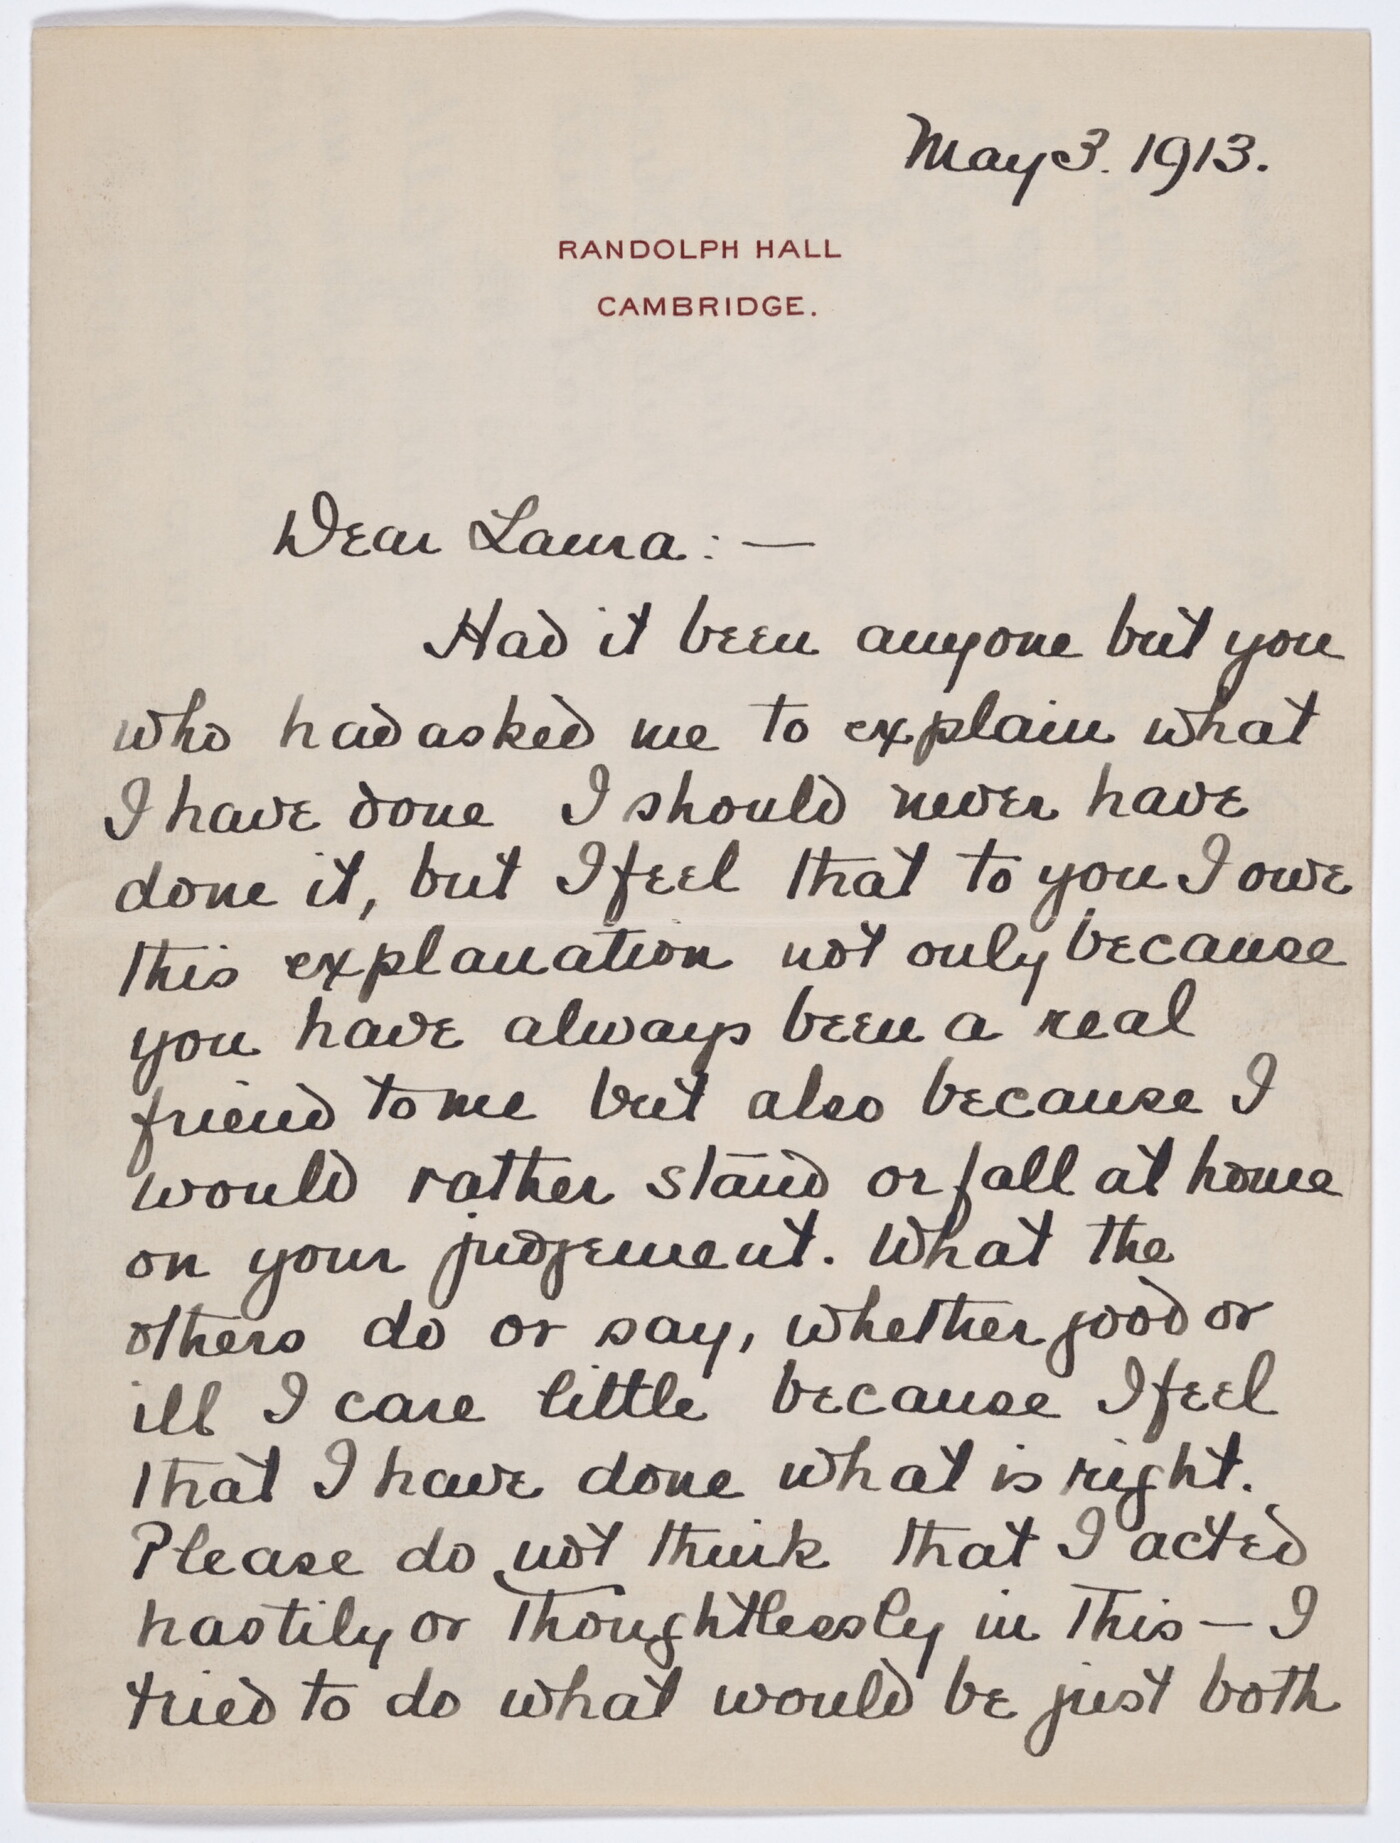 May 3. 1913.
RANDOLPH HALL
CAMBRIDGE.
Dear Laura: —
Had it been anyone but you
who had asked me to explain what
I have done I should never have
done it, but I feel that to you I owe
this explanation not only because
you have always been a real
friend to me but also because I
would rather stand or fall at home
on your judgement. What the
others do or say, whether good or
ill I care little because I feel
that I have done what is right.
Please do not think that I acted
hastily or thoughtlessly in this — I
tried to do what would be just both